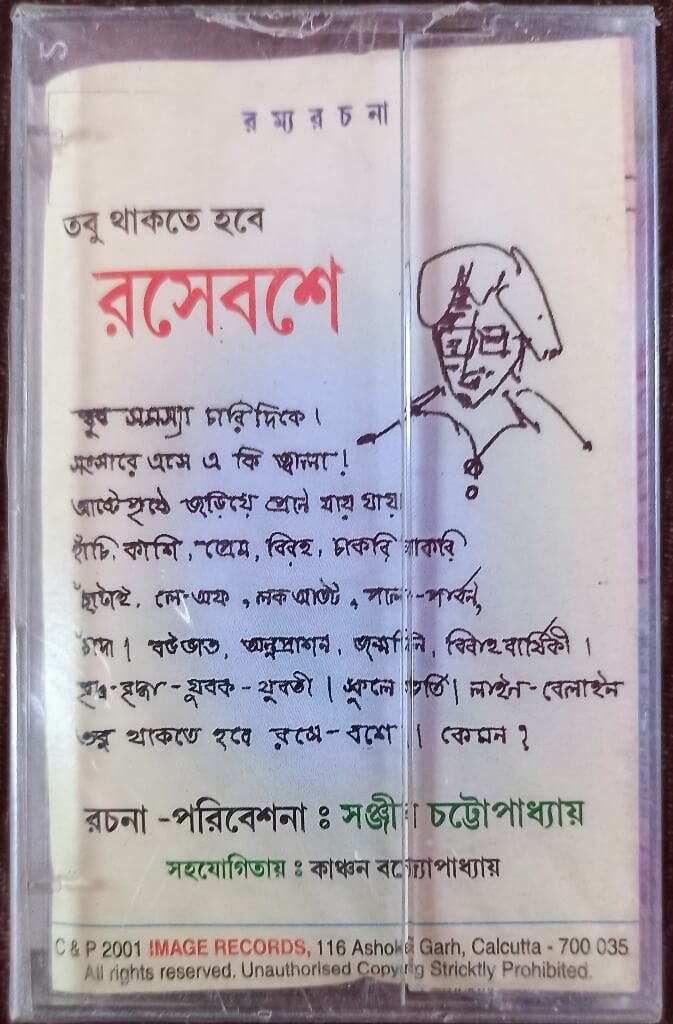 রম্যরচনা
তবু থাকতে হবে
রসেবশে
খুব সমস্যা চারিদিকে।
সংসারে এসে এ কি জ্বালা!
আষ্টেপৃষ্ঠে জড়িয়ে প্রেনে যায় যায়
হাঁচি, কাশি, প্রেম, বিরহ, চাকরি বাকরি
ছাঁটাই, লে-অফ, লক আউট, পাল-পার্বন,
চাঁদা। বউভাত, অন্নপ্রাশন, জন্মদিন, বিবাহ বার্ষিকী।
বৃদ্ধ-বৃদ্ধা-যুবক-যুবতী। স্কুলে ভর্তি। লাইন-বেলাইন
তবু থাকতে হবে রসে-বশে। কেমন?
রচনা -পরিবেশনা ঃ সঞ্জীব চট্টোপাধ্যায়
সহযোগিতায় ঃ কাঞ্চন বন্দ্যোপাধ্যায়
C & P 2001 IMAGE RECORDS, 116 Ashoke Garh, Calcutta - 700 035
All rights reserved. Unauthorised Copying Stricktly Prohibited.